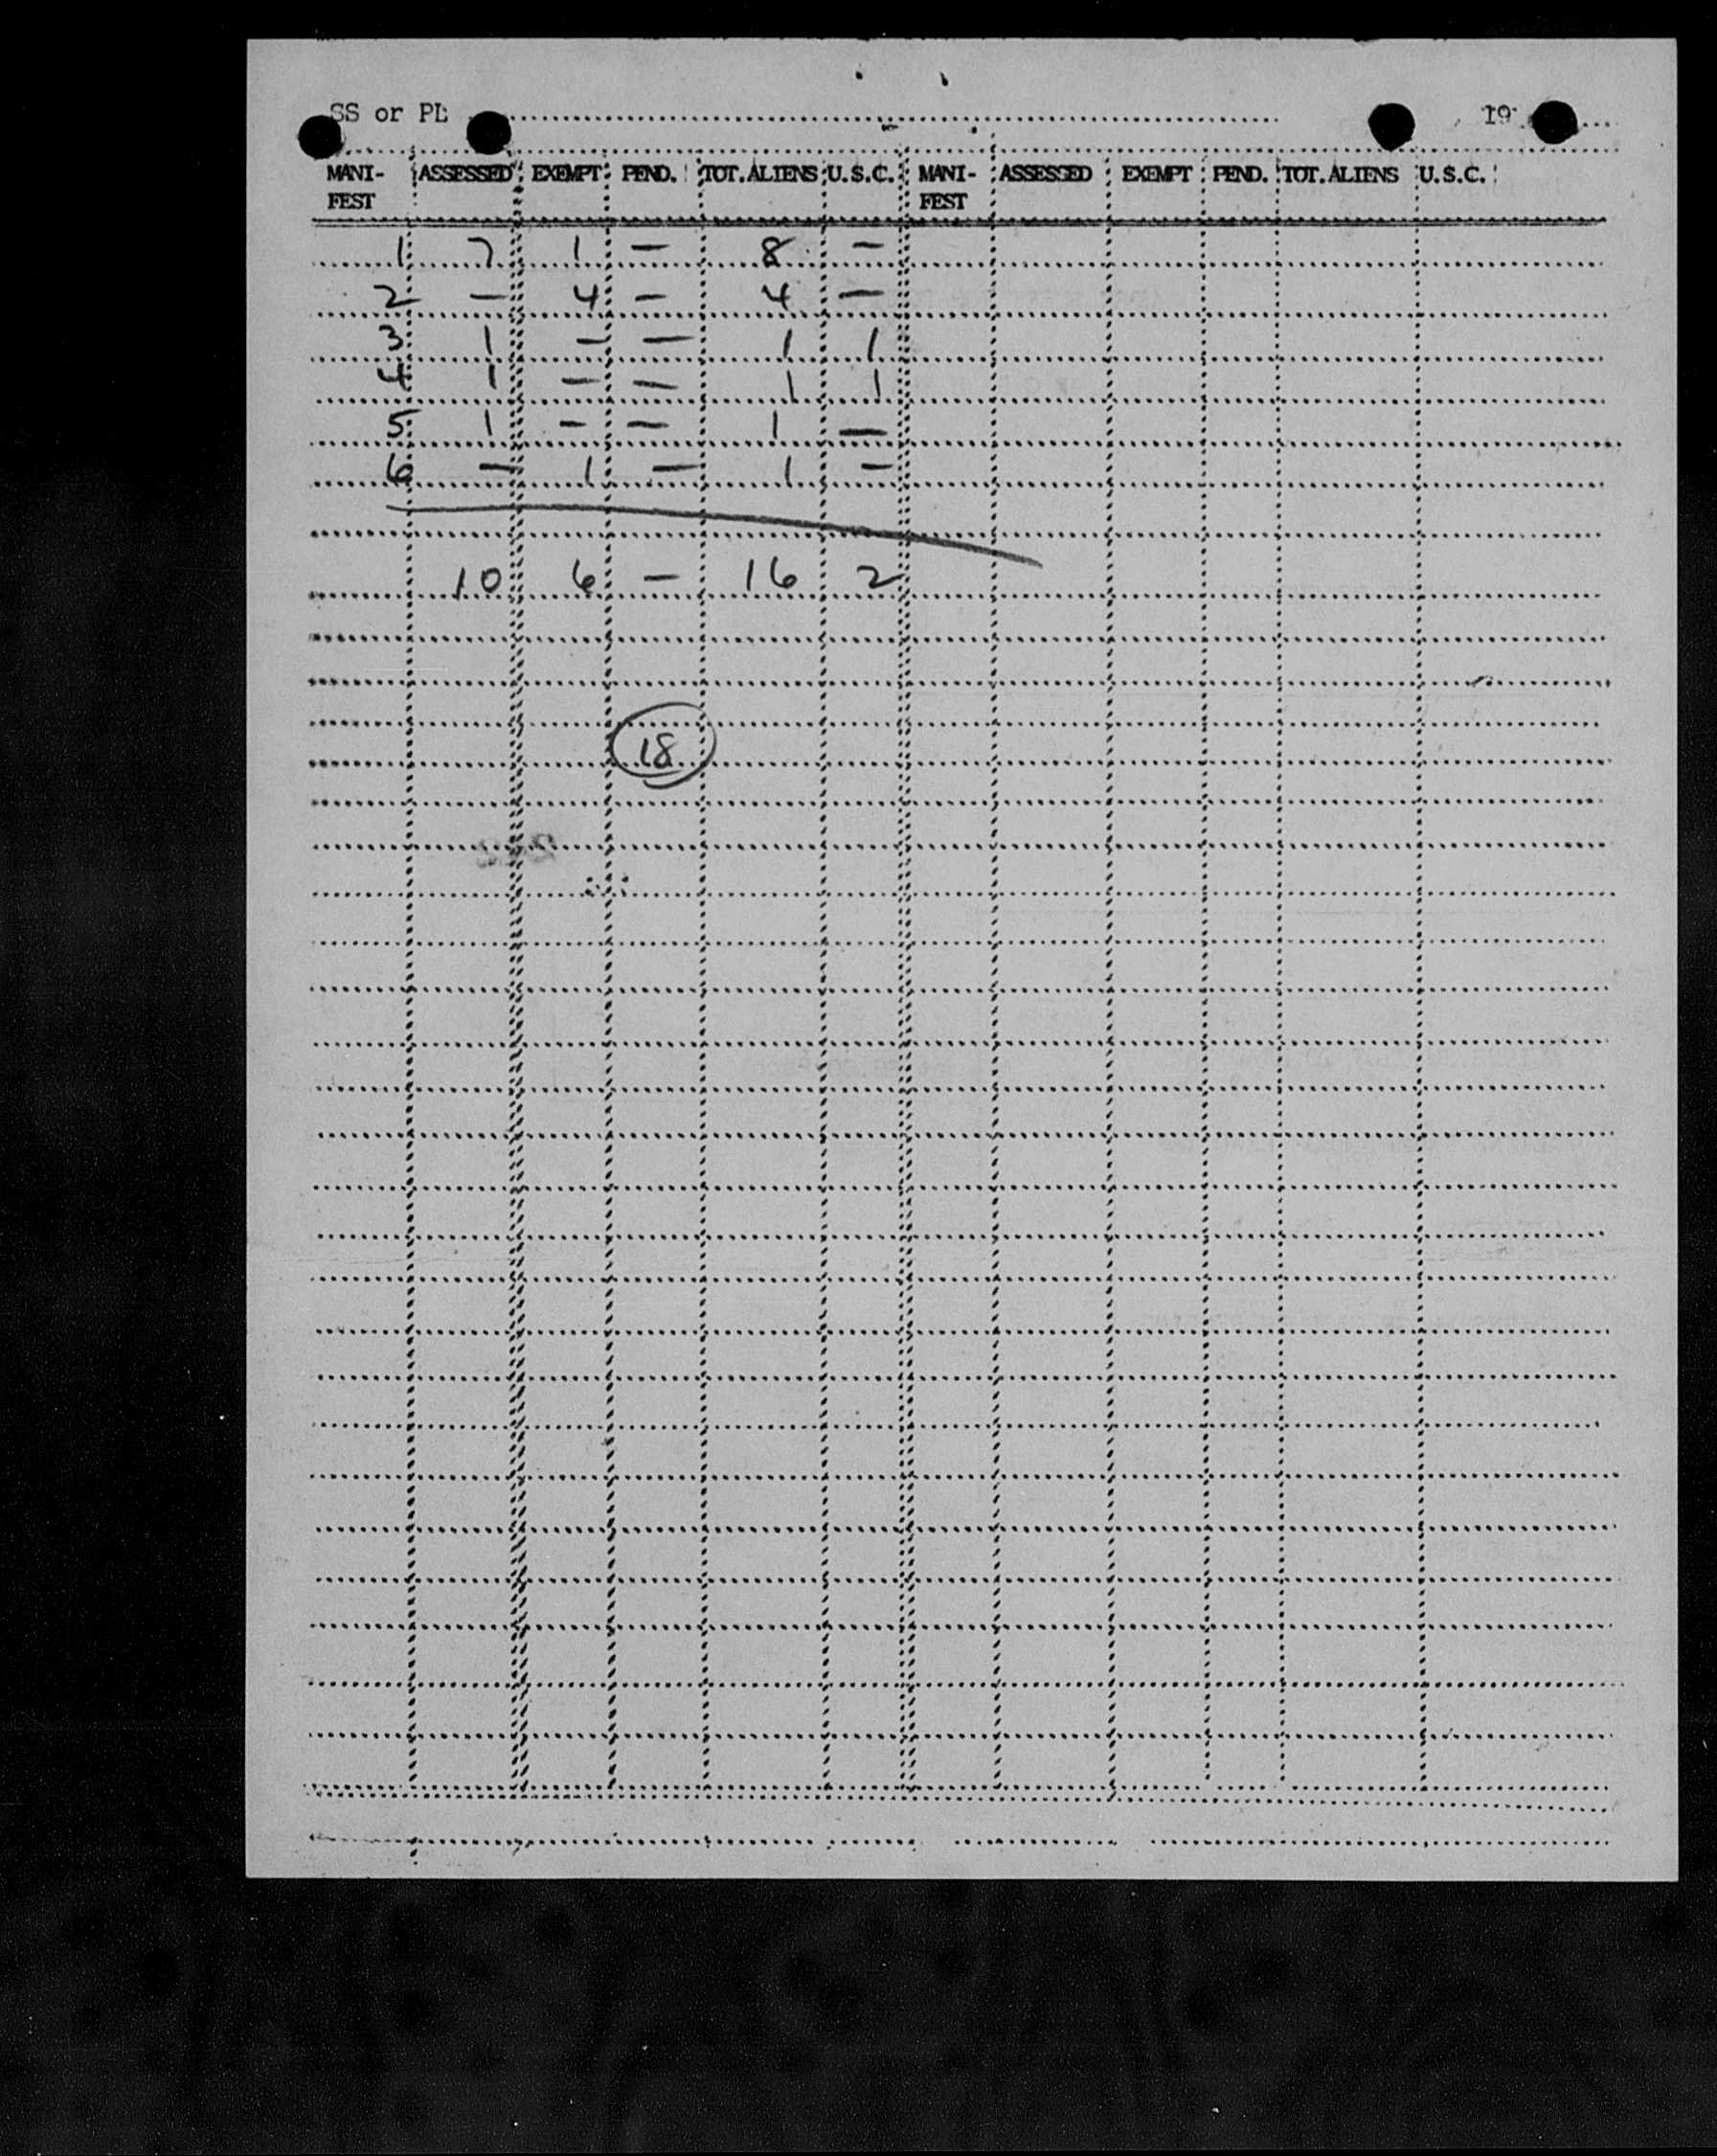 SS or PL 19
MANI-FEST ASSESSED EXEMPT PEND. TOT. ALIENS U.S.C. MANI-FEST ASSESSED EXEMPT PEND. TOT. ALIENS U.S.C.
1 7 1 — 8 —
2 — 4 — 4 —
3 1 — — 1 1
4 1 — — 1 1
5 1 — — 1 —
6 — 1 — 1 —
10 6 — 16 2
18